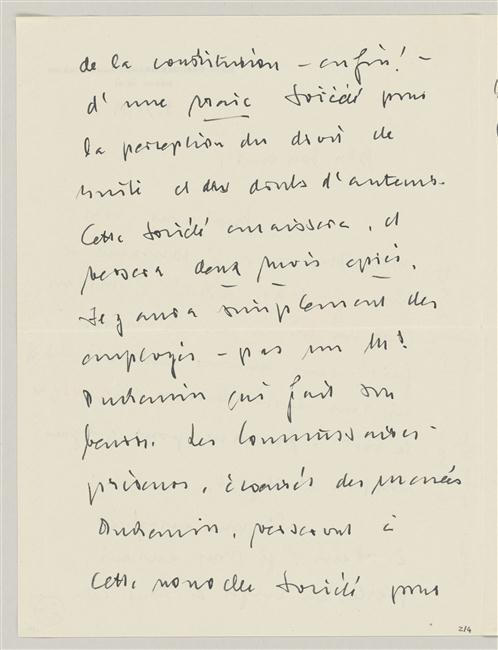 de la constitution – enfin! –
d'une vraie Société pour
la perception du droit de
suite et des droits d'auteurs.
Cette Société encaissera, et
versera deux mois après.
Il y aura simplement des
employés – pas un Mr
Duchemin qui fait son
beurre. Les Commissaires-
priseurs, écoeurés des menées
Duchemin, verseront à
Cette nouvelle Société pour
2/4